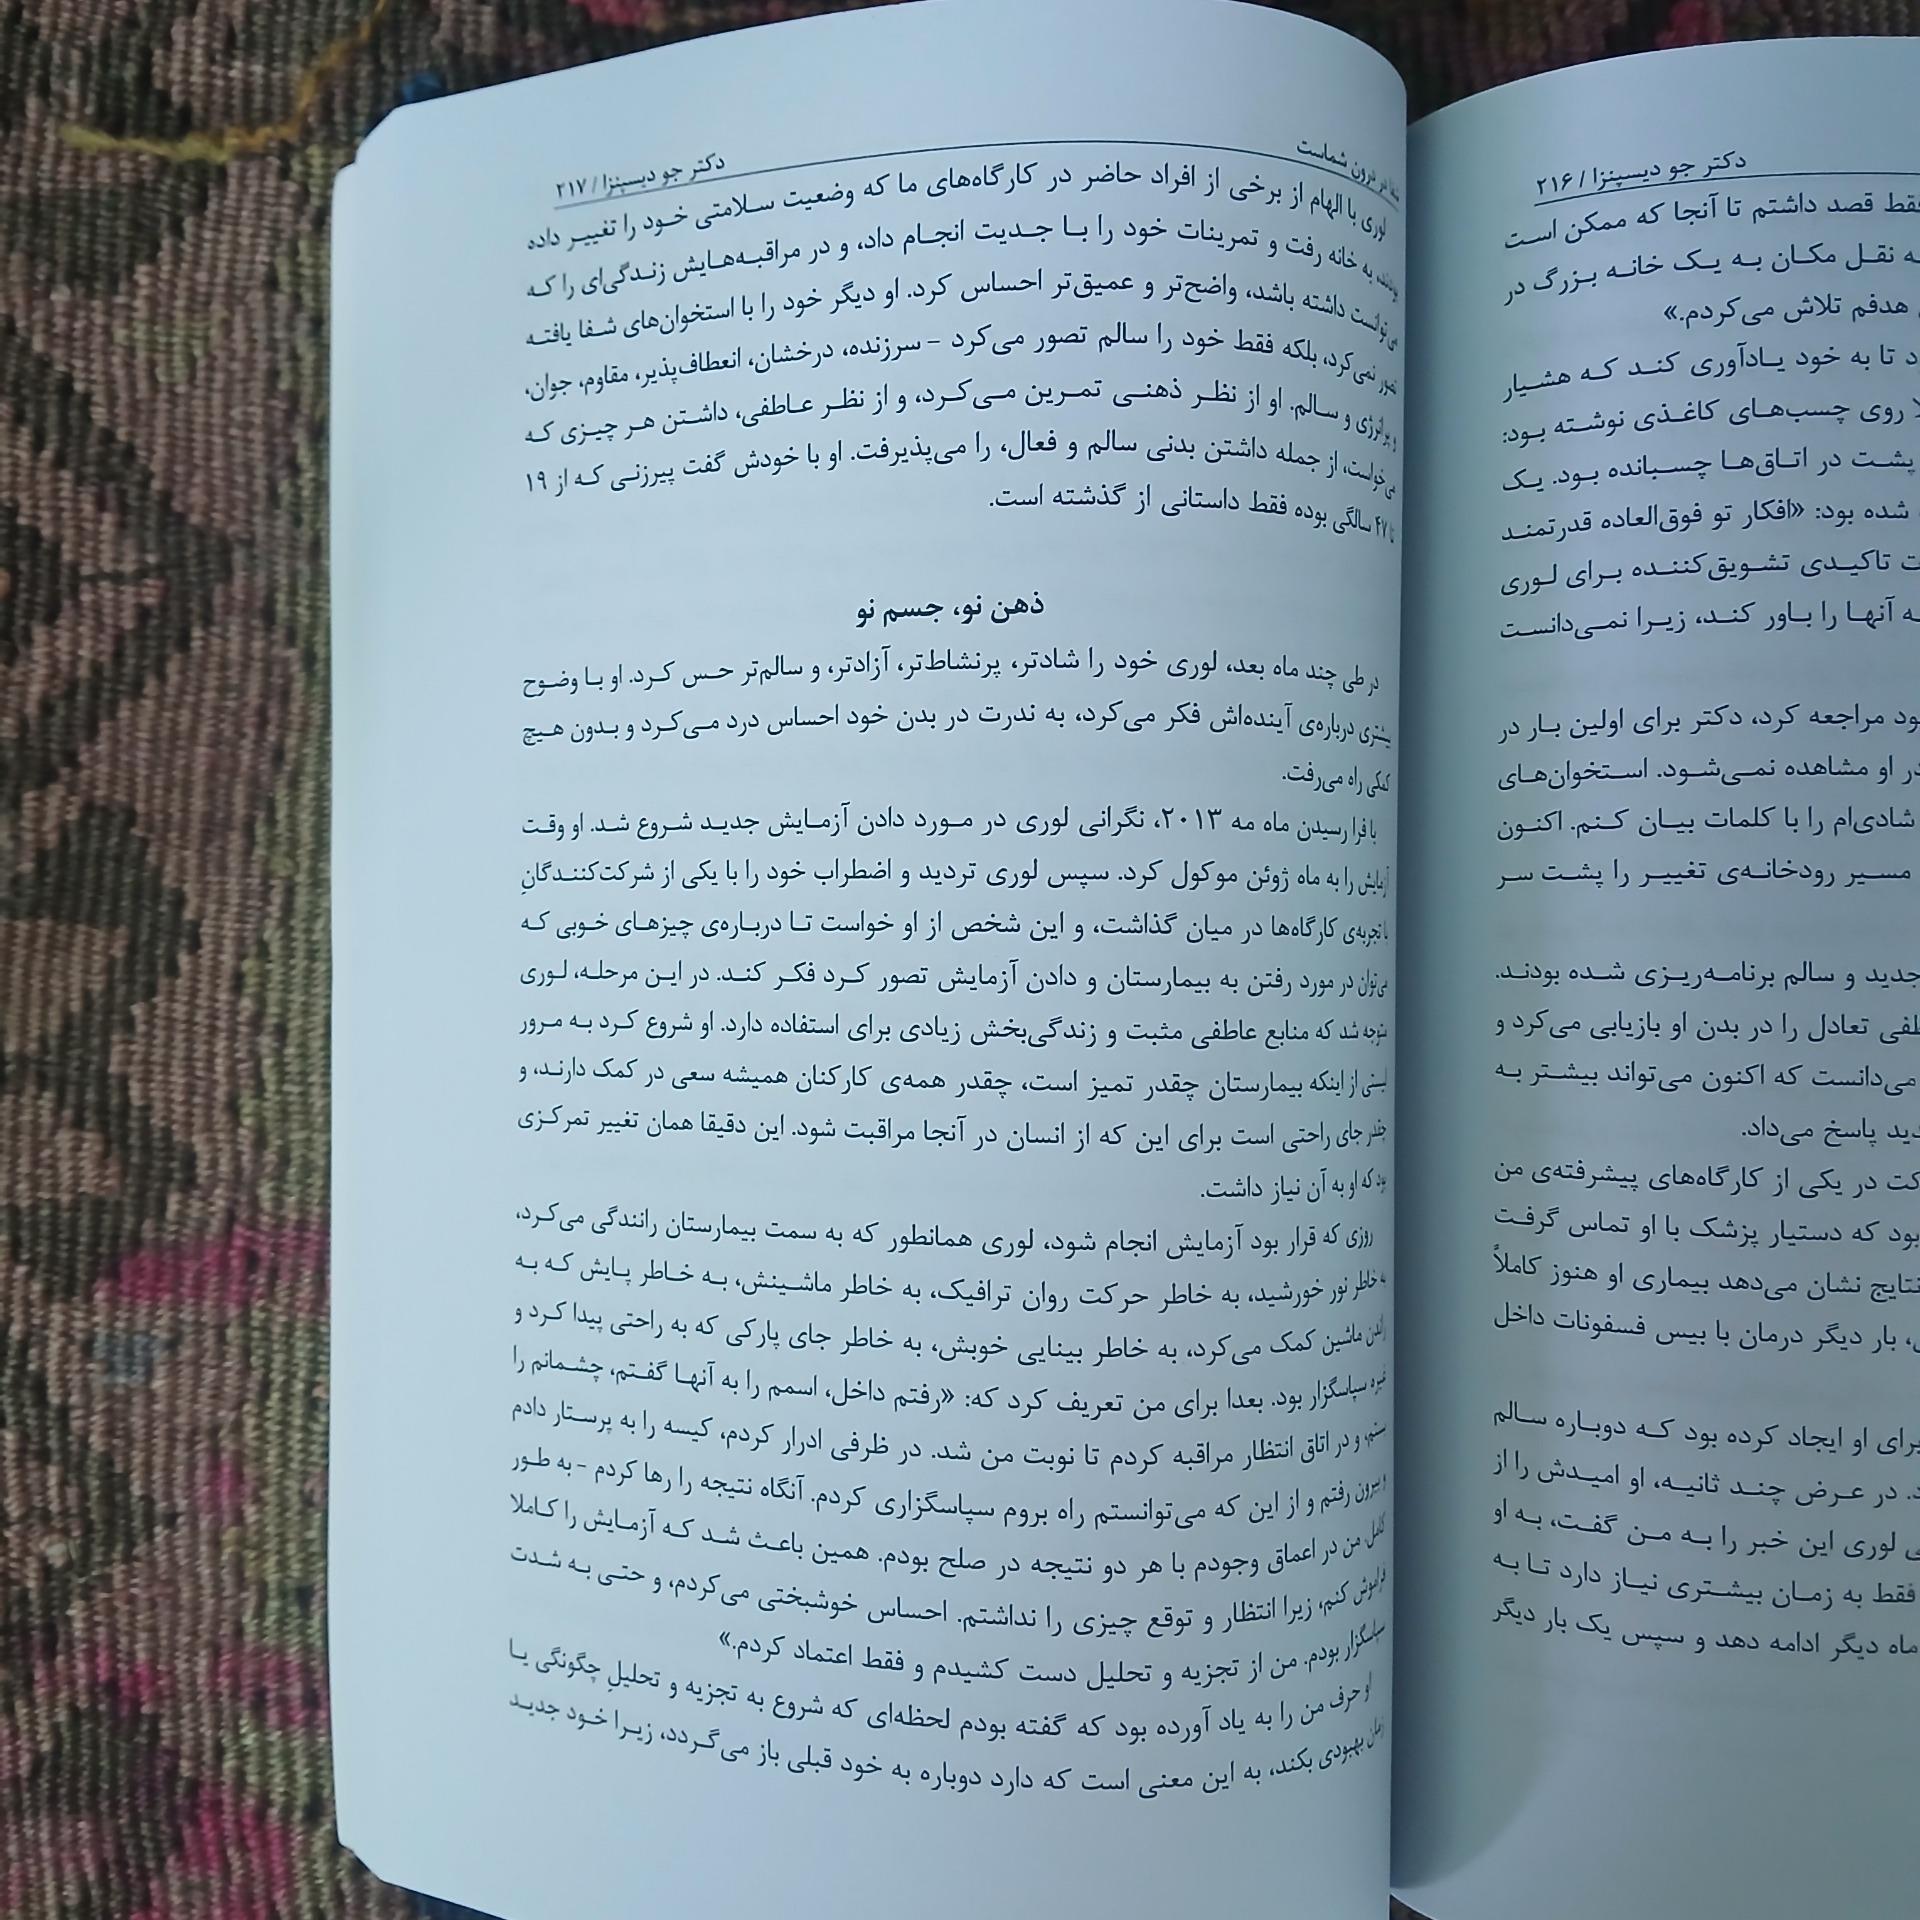 دکتر جو دیسپنزا / ۲۱۶
فقط قصد داشتم تا آنجا که ممکن است
نقل مکان به یک خانه بزرگ در
هدفم تلاش می‌کردم.»
تا به خود یادآوری کند که هشیار
روی چسب‌های کاغذی نوشته بود:
پشت در اتاق‌ها چسبانده بود. یک
شده بود: «افکار تو فوق‌العاده قدرتمند
تاکیدی تشویق‌کننده برای لوری
آنها را باور کند، زیرا نمی‌دانست
مراجعه کرد، دکتر برای اولین بار در
در او مشاهده نمی‌شود. استخوان‌های
شادی‌ام را با کلمات بیان کنم. اکنون
مسیر رودخانه‌ی تغییر را پشت سر
جدید و سالم برنامه‌ریزی شده بودند.
تعادل را در بدن او بازیابی می‌کرد و
می‌دانست که اکنون می‌تواند بیشتر به
پاسخ می‌داد.
در یکی از کارگاه‌های پیشرفته‌ی من
بود که دستیار پزشک با او تماس گرفت
نتایج نشان می‌دهد بیماری او هنوز کاملاً
بار دیگر درمان با بیس فسفونات داخل
برای او ایجاد کرده بود که دوباره سالم
در عرض چند ثانیه، او امیدش را از
لوری این خبر را به من گفت، به او
فقط به زمان بیشتری نیاز دارد تا به
ماه دیگر ادامه دهد و سپس یک بار دیگر
در درون شماست
دکتر جو دیسپنزا / ۲۱۷
لوری با الهام از برخی از افراد حاضر در کارگاه‌های ما که وضعیت سلامتی خود را تغییر داده
بودند، به خانه رفت و تمرینات خود را با جدیت انجام داد، و در مراقبه‌هایش زندگی‌ای را که
می‌توانست داشته باشد، واضح‌تر و عمیق‌تر احساس کرد. او دیگر خود را با استخوان‌های شفا یافته
تصور نمی‌کرد، بلکه فقط خود را سالم تصور می‌کرد – سرزنده، درخشان، انعطاف‌پذیر، مقاوم، جوان،
و پر انرژی و سالم. او از نظر ذهنی تمرین می‌کرد، و از نظر عاطفی، داشتن هر چیزی که
می‌خواست، از جمله داشتن بدنی سالم و فعال، را می‌پذیرفت. او با خودش گفت پیرزنی که از ۱۹
تا ۴۷ سالگی بوده فقط داستانی از گذشته است.
ذهن نو، جسم نو
در طی چند ماه بعد، لوری خود را شادتر، پرنشاط‌تر، آزادتر، و سالم‌تر حس کرد. او با وضوح
بیشتری درباره‌ی آینده‌اش فکر می‌کرد، به ندرت در بدن خود احساس درد می‌کرد و بدون هیچ
کمکی راه می‌رفت.
با فرا رسیدن ماه مه ۲۰۱۳، نگرانی لوری در مورد دادن آزمایش جدید شروع شد. او وقت
آزمایش را به ماه ژوئن موکول کرد. سپس لوری تردید و اضطراب خود را با یکی از شرکت‌کنندگانِ
با تجربه‌ی کارگاه‌ها در میان گذاشت، و این شخص از او خواست تا درباره‌ی چیزهای خوبی که
می‌توان در مورد رفتن به بیمارستان و دادن آزمایش تصور کرد فکر کند. در این مرحله، لوری
متوجه شد که منابع عاطفی مثبت و زندگی‌بخش زیادی برای استفاده دارد. او شروع کرد به مرور
لیستی از اینکه بیمارستان چقدر تمیز است، چقدر همه‌ی کارکنان همیشه سعی در کمک دارند، و
چقدر جای راحتی است برای این که از انسان در آنجا مراقبت شود. این دقیقا همان تغییر تمرکزی
بود که او به آن نیاز داشت.
روزی که قرار بود آزمایش انجام شود، لوری همانطور که به سمت بیمارستان رانندگی می‌کرد،
به خاطر نور خورشید، به خاطر حرکت روان ترافیک، به خاطر ماشینش، به خاطر پایش که به
راندن ماشین کمک می‌کرد، به خاطر بینایی خوبش، به خاطر جای پارکی که به راحتی پیدا کرد و
غیره سپاسگزار بود. بعدا برای من تعریف کرد که: «رفتم داخل، اسمم را به آنها گفتم، چشمانم را
بستم، و در اتاق انتظار مراقبه کردم تا نوبت من شد. در ظرفی ادرار کردم، کیسه را به پرستار دادم
و بیرون رفتم و از این که می‌توانستم راه بروم سپاسگزاری کردم. آنگاه نتیجه را رها کردم – به طور
کامل. من در اعماق وجودم با هر دو نتیجه در صلح بودم. همین باعث شد که آزمایش را کاملا
فراموش کنم، زیرا انتظار و توقع چیزی را نداشتم. احساس خوشبختی می‌کردم، و حتی به شدت
سپاسگزار بودم. من از تجزیه و تحلیل دست کشیدم و فقط اعتماد کردم.»
او حرف من را به یاد آورده بود که گفته بودم لحظه‌ای که شروع به تجزیه و تحلیلِ چگونگی یا
زمان بهبودی بکند، به این معنی است که دارد دوباره به خود قبلی باز می‌گردد، زیرا خود جدید